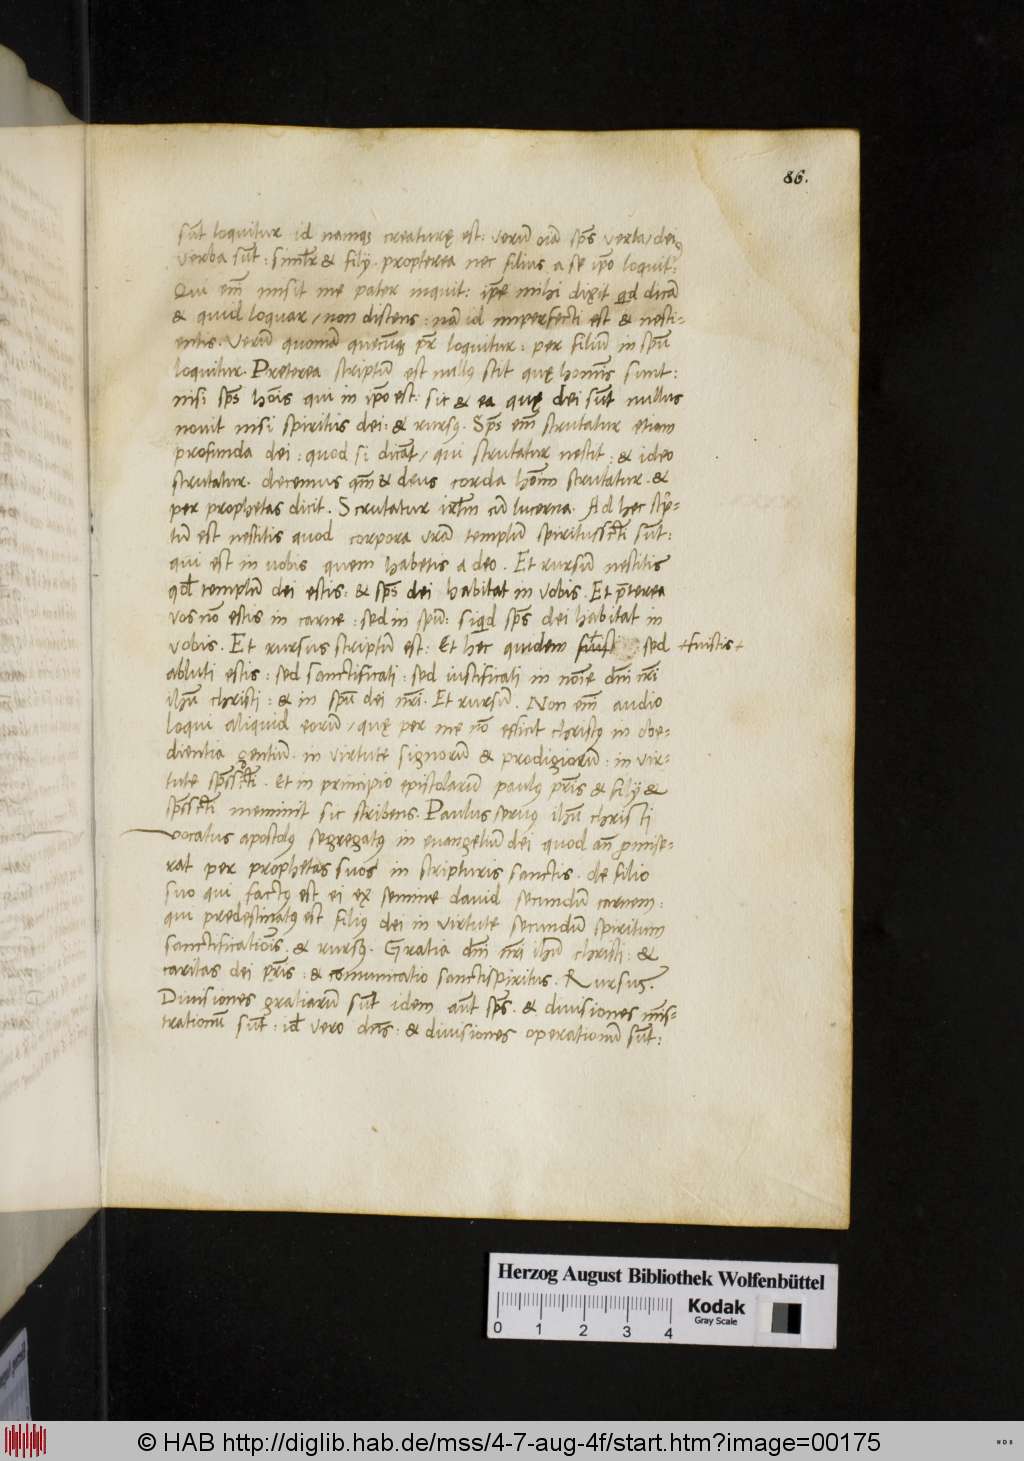 86.
sūt loquitur id namqꝫ creaturę est: verū oīa sp̄s verba, dei
verba sūt: simłr & filij. propterea nec filius a se ip̄o loquit̄:
Qui em̄ misit me pater inquit: ip̄e mihi dixit qd dicā
& quid loquar, non discens: nā id imperfecti est & nesci-
entis. Verū quoniā quecūqꝫ pr̄ loquitur: per filiū in sp̄u
loquitur. Preterea scriptū est nullꝰ scit quę homīs sunt:
nisi sp̄s hoīs qui in ip̄o est: sic & ea quę dei sūt nullus
nouit nisi spiritus dei: & rursꝰ. Sp̄s em̄ scrutatur etiam
profunda dei: quod si dicāt, qui scrutatur nescit: & ideo
scrutatur. decemus qm̄ & deus corda hoīm scrutatur. &
per prophetas dicit. Scrutatur irłm cū lucerna. Ad hec scrip-
tū est nescitis quod corpora vrā templū spiritussc̄ti sūt:
qui est in uobis quem habetis a deo. Et rursū nescitis
qđ templū dei estis: & sp̄s dei habitat in vobis. Et p̄terea
vos nō estis in carne: sed in sp̄u: siqd sp̄s dei habitat in
vobis. Et rursus scriptū est: Et hec quidem sed +fuistis+
abluti estis: sed sanctificati: sed iustificati in noīe dn̄i nr̄i
ihū christi: & in sp̄u dei nr̄i. Et rursū. Non em̄ audio
loqui aliquid eorū, quę per me nō efficit christꝰ in obe-
dientia gentiū in virtute signorū & prodigiorū: in vir-
tute sp̄ssc̄ti. Et in principio epistolarū paulꝰ pr̄is & filij &
sp̄ssc̄ti meminit sic scribens. Paulus seruꝰ ihū christi
vocatus apostolꝰ segregatꝰ in euangeliū dei quod an̄ promise-
rat per prophetas suos in scripturis sanctis. de filio
suo qui factꝰ est ei ex semine dauid secundū carnem:
qui predestinatꝰ est filiꝰ dei in virtute secundū spiritum
sanctificatiōis. & rursꝰ. Gratia dn̄i nr̄i ihū christi: &
caritas dei pr̄is: & comunicatio sanctispiritus. Rursus.
Diuisiones gratiarū sūt idem aūt sp̄s. & diuisiones minis-
trationū sūt: id̄ vero dn̄s: & diuisiones operationū sūt:
Herzog August Bibliothek Wolfenbüttel
0 1 2 3 4
Kodak
Gray Scale
© HAB http://diglib.hab.de/mss/4-7-aug-4f/start.htm?image=00175